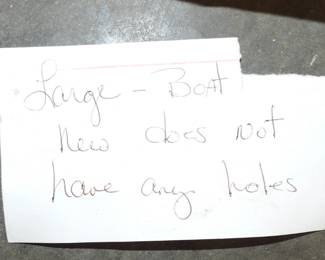 Large - Boat
New does not
have any holes